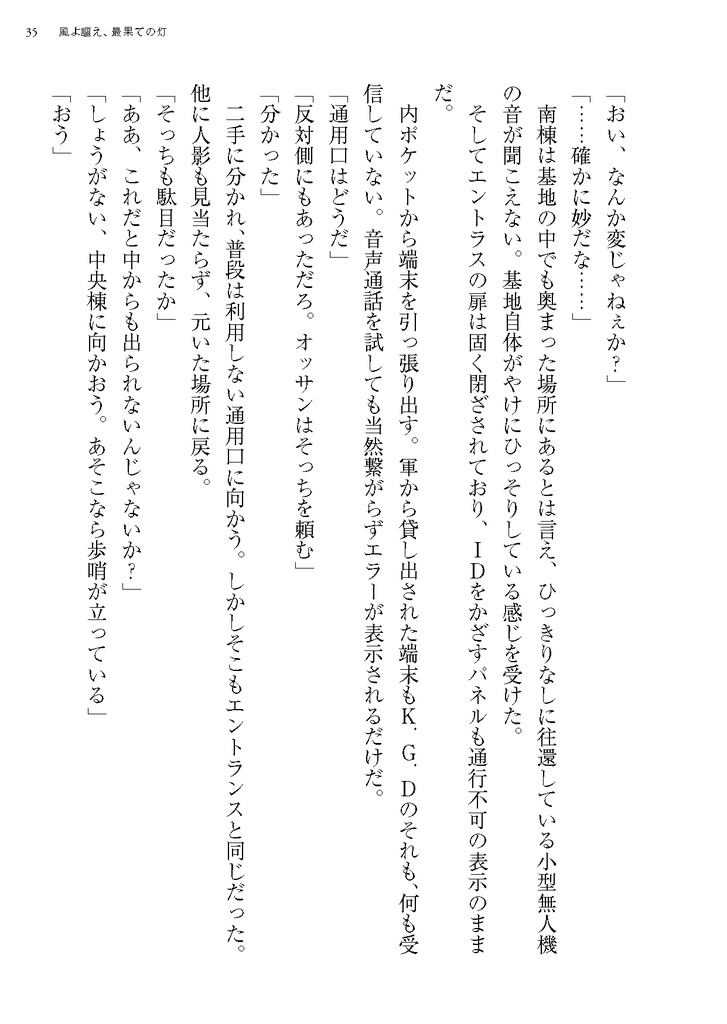 35 風よ謳え、最果ての灯
「おい、なんか変じゃねぇか？」
「……確かに妙だな……」
南棟は基地の中でも奥まった場所にあるとは言え、ひっきりなしに往還している小型無人機
の音が聞こえない。基地自体がやけにひっそりしている感じを受けた。
そしてエントラスの扉は固く閉ざされており、ＩＤをかざすパネルも通行不可の表示のまま
だ。
内ポケットから端末を引っ張り出す。軍から貸し出された端末もＫ．Ｇ．Ｄのそれも、何も受
信していない。音声通話を試しても当然繋がらずエラーが表示されるだけだ。
「通用口はどうだ」
「反対側にもあっただろ。オッサンはそっちを頼む」
「分かった」
二手に分かれ、普段は利用しない通用口に向かう。しかしそこもエントランスと同じだった。
他に人影も見当たらず、元いた場所に戻る。
「そっちも駄目だったか」
「ああ、これだと中からも出られないんじゃないか？」
「しょうがない、中央棟に向かおう。あそこなら歩哨が立っている」
「おう」